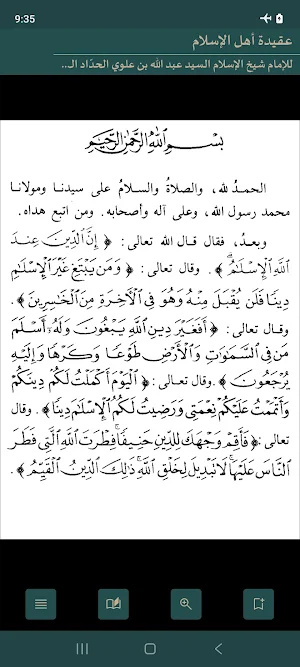 9:35
عقيدة أهل الإسلام
للإمام شيخ الإسلام السيد عبد الله بن علوي الحدّاد الـ...
بِسْمِ اللَّهِ الرَّحْمَٰنِ الرَّحِيمِ
الحمدُ لله، والصلاةُ والسلامُ على سيدنا ومولانا
محمد رسول الله، وعلى آله وأصحابه. ومن اتبع هداه.
وبعدُ، فقال قال الله تعالى: ﴿ إِنَّ الدِّينَ عِندَ
اللَّهِ الْإِسْلَامُ ﴾. وقال تعالى: ﴿ وَمَن يَبْتَغِ غَيْرَ الْإِسْلَامِ
دِينًا فَلَن يُقْبَلَ مِنْهُ وَهُوَ فِي الْآخِرَةِ مِنَ الْخَاسِرِينَ ﴾.
وقال تعالى: ﴿ أَفَغَيْرَ دِينِ اللَّهِ يَبْغُونَ وَلَهُ أَسْلَمَ
مَن فِي السَّمَاوَاتِ وَالْأَرْضِ طَوْعًا وَكَرْهًا وَإِلَيْهِ
يُرْجَعُونَ ﴾. وقال تعالى: ﴿ الْيَوْمَ أَكْمَلْتُ لَكُمْ دِينَكُمْ
وَأَتْمَمْتُ عَلَيْكُمْ نِعْمَتِي وَرَضِيتُ لَكُمُ الْإِسْلَامَ دِينًا ﴾. وقال
تعالى: ﴿ فَأَقِمْ وَجْهَكَ لِلدِّينِ حَنِيفًا فِطْرَتَ اللَّهِ الَّتِي فَطَرَ
النَّاسَ عَلَيْهَا لَا تَبْدِيلَ لِخَلْقِ اللَّهِ ذَٰلِكَ الدِّينُ الْقَيِّمُ ﴾.